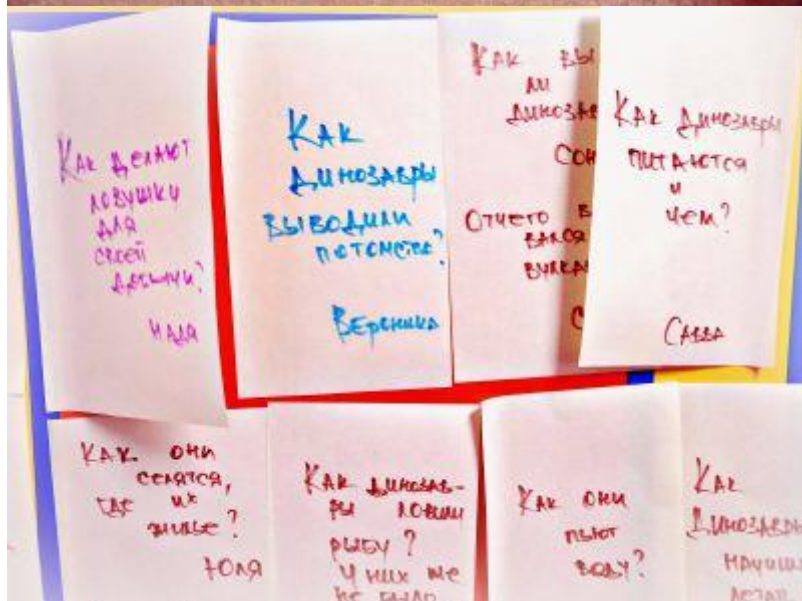 Как делают
ловушки
для
своей
добычи?
Надя
Как
динозавры
выводили
потомство?
Вероника
Как
ли
Отчего
Как динозавры
питаются
и
чем?
Савва
Как они
селятся,
где их
жилье?
Юля
Как динозав-
ры ловили
рыбу?
У них же
не было
Как они
пьют
воду?
Как